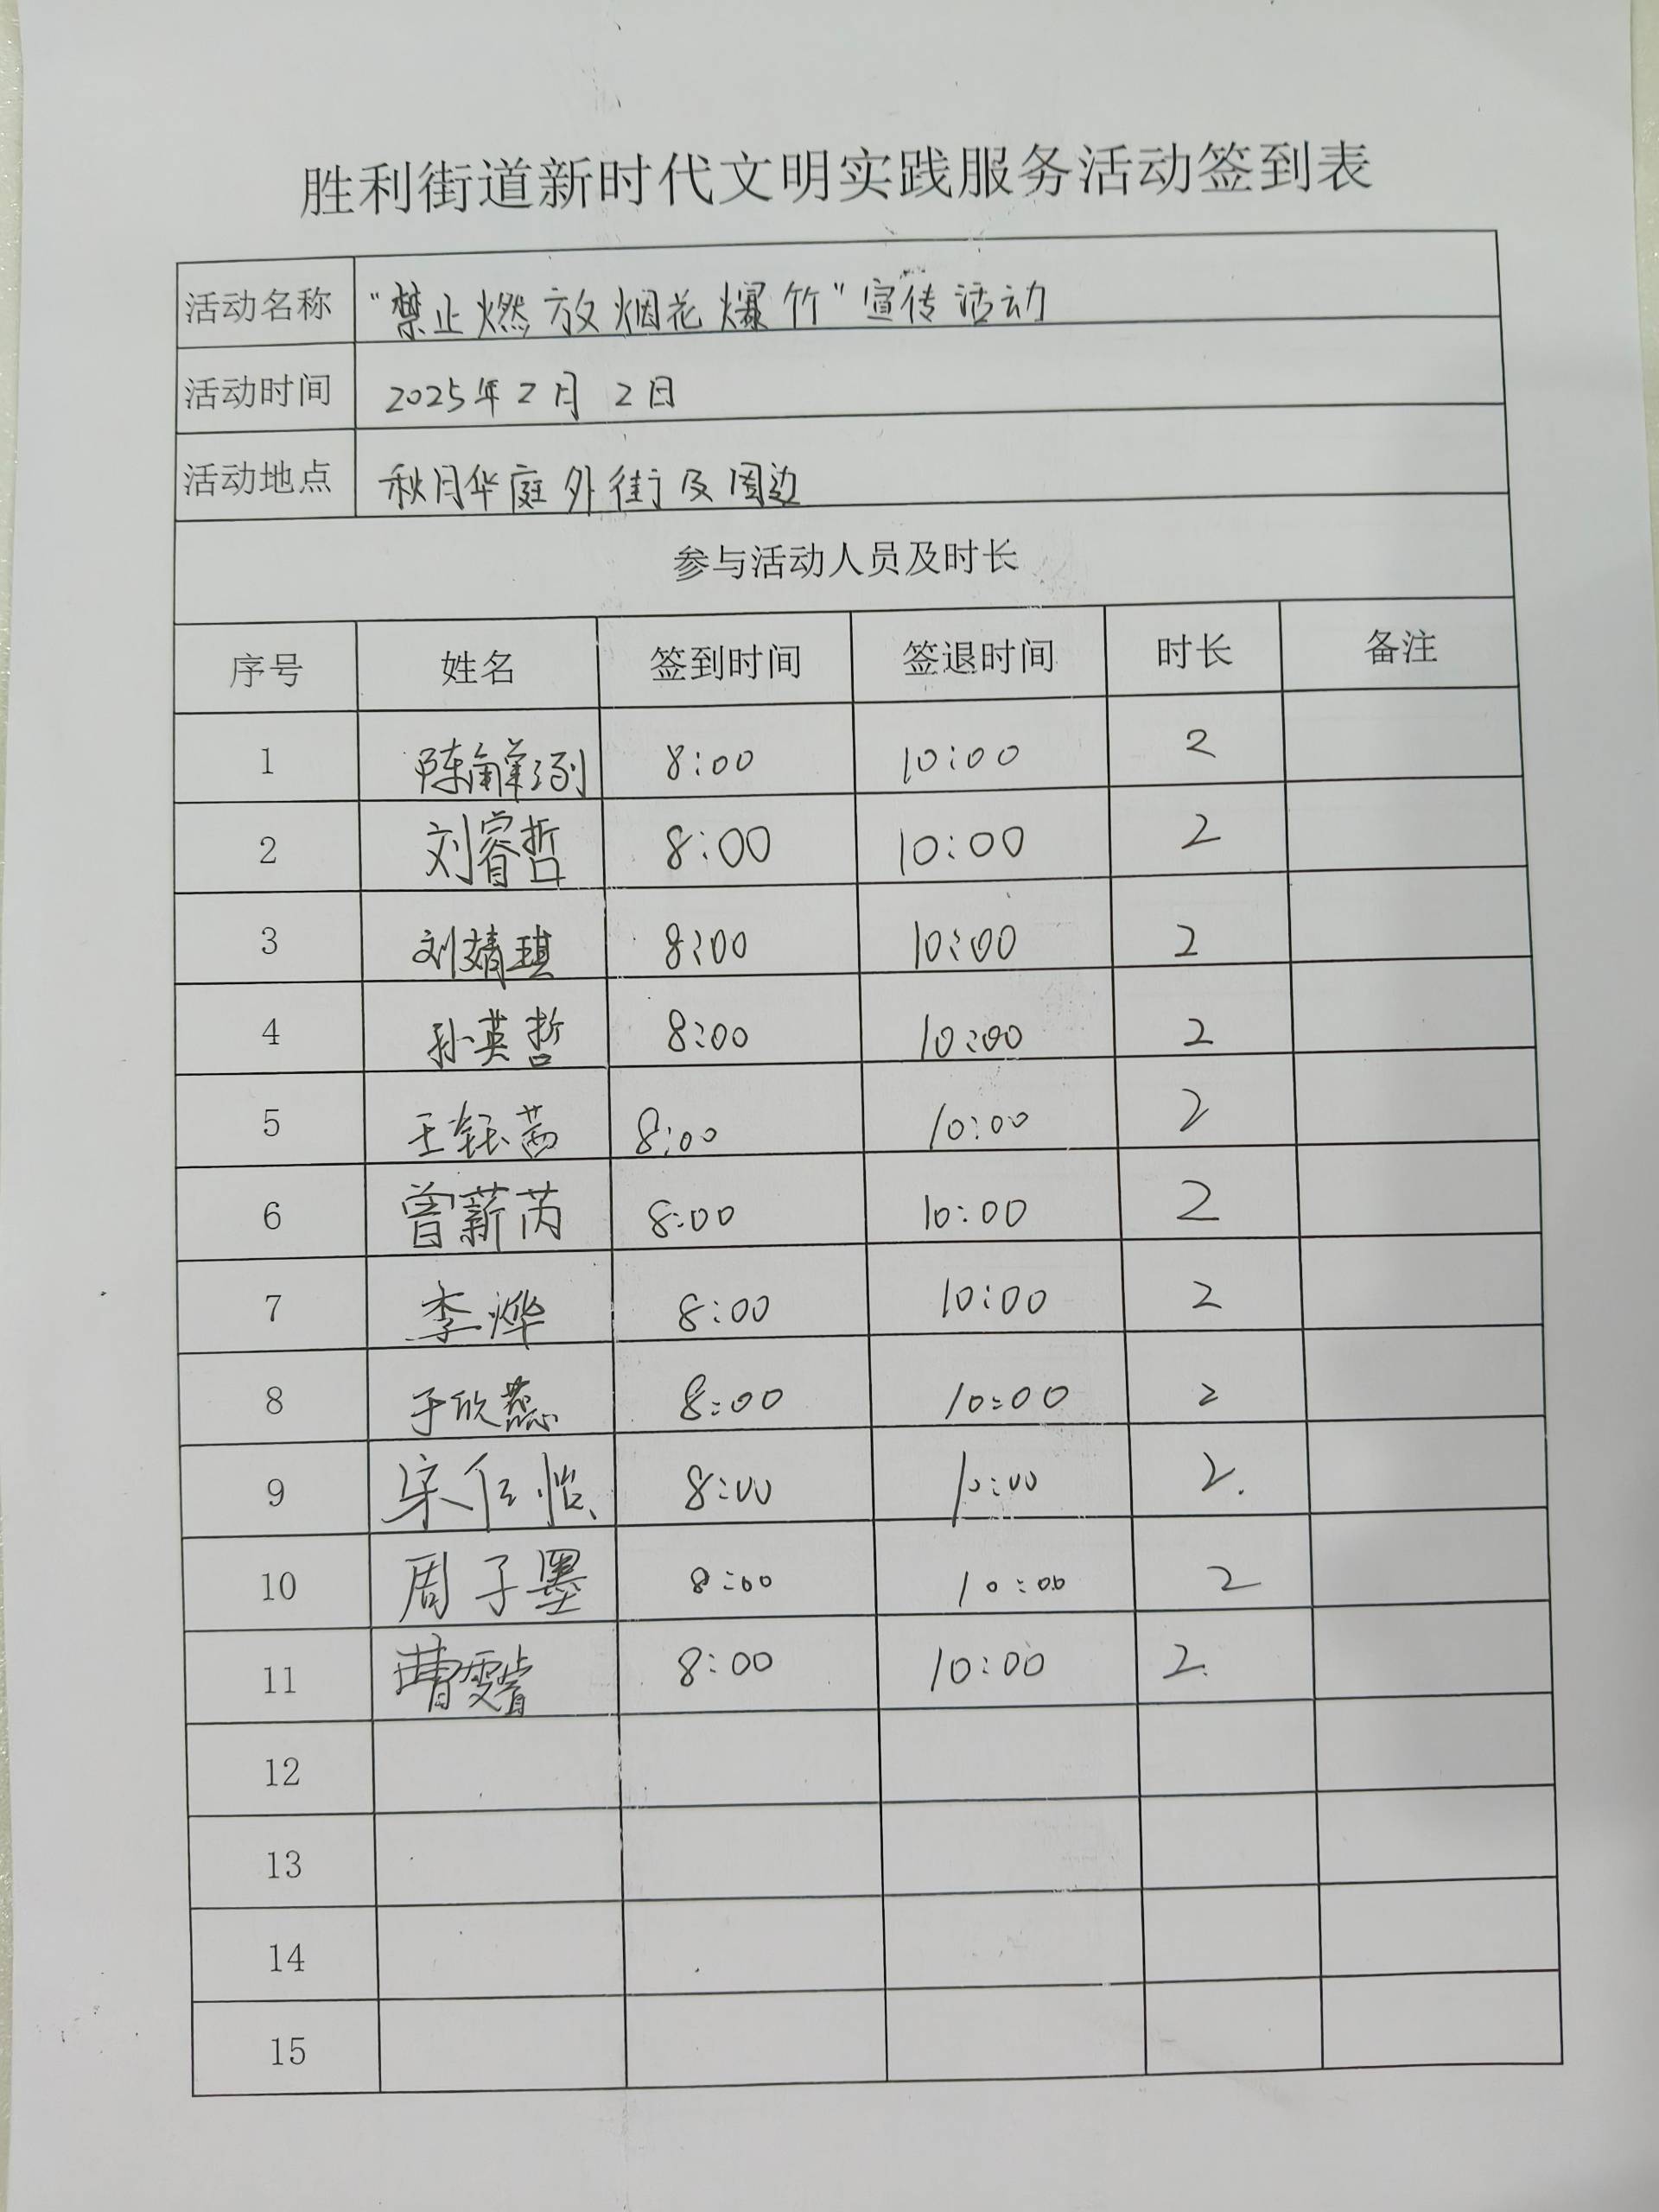 胜利街道新时代文明实践服务活动签到表
活动名称 “禁止燃放烟花爆竹”宣传活动
活动时间 2025年2月2日
活动地点 秋月华庭外街及周边
参与活动人员及时长
序号 姓名 签到时间 签退时间 时长 备注
1 8:00 10:00 2
2 刘睿哲 8:00 10:00 2
3 刘婧琪 8:00 10:00 2
4 孙英哲 8:00 10:00 2
5 王钰茜 8:00 10:00 2
6 曾薪芮 8:00 10:00 2
7 李烨 8:00 10:00 2
8 于欣蕊 8:00 10:00 2
9 8:00 10:00 2.
10 周子墨 8:00 10:00 2
11 曹雯睿 8:00 10:00 2.
12
13
14
15